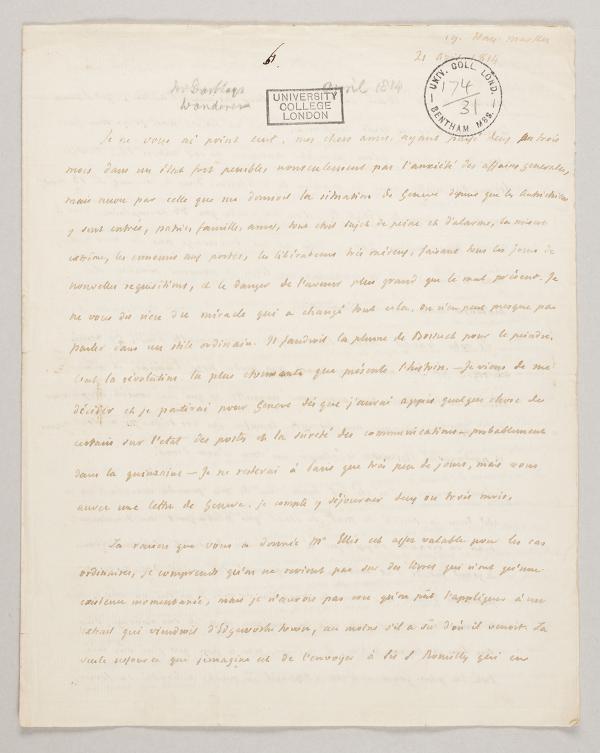 19. Hay Market
21 avril 1814
April 1814
Wanderer
UNIVERSITY
COLLEGE
LONDON
UNIV. COLL. LOND.
174
31
BENTHAM MSS.
Je ne vous ai point ecrit, mes chers amis, ayant passé deux ou trois
mois dans un état fort penible, nonseulement par l'anxiété des affaires generales,
mais encor par celle que me donnoit la situation de Geneve depuis que les Autrichiens
y sont entrés, patrie, famille, amis, tout etoit sujet de peine et d'alarme, la misere
extrème, les ennemis aux portes, les libérateurs très onéreux, faisant tous les jours de
nouvelles requisitions, et le danger de l'avenir plus grand que le mal présent. Je
ne vous dis rien du miracle qui a changé tout cela. on n'en peut presque pas
parler dans un stile ordinaire. Il faudroit la plume de Bossuet pour le peindre.
C'est la révolution la plus etonnante que présente l'histoire. — Je viens de me
décider et je partirai pour Geneve dès que j'aurai appris quelque chose de
certain sur l'etat des postes et la sûreté des communications — probablement
dans la quinzaine — Je ne resterai à Paris que très peu de jours, mais vous
aurez une lettre de Geneve. je compte y séjourner deux ou trois mois.
La raison que vous a donnée Mr Ellis est assez valable pour les cas
ordinaires, je comprends qu'on ne revient pas sur des livres qui n'ont qu'une
existence momentanée, mais je n'aurois pas cru qu'on pût l'appliquer à un
extrait qui viendroit d'Edgeworths town, au moins s'il a su d'où il venoit. La
seule ressource que j'imagine est de l'envoyer à Sir S Romilly qui en